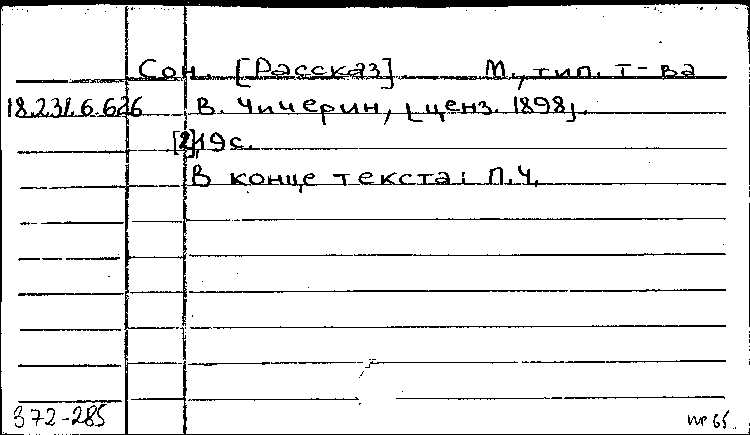 Сон. [Рассказ] М., тип. т-ва
18.231.6.626 В. Чичерин, [ценз. 1898].
[2],19с.
В конце текста: П.Ч.
372-285